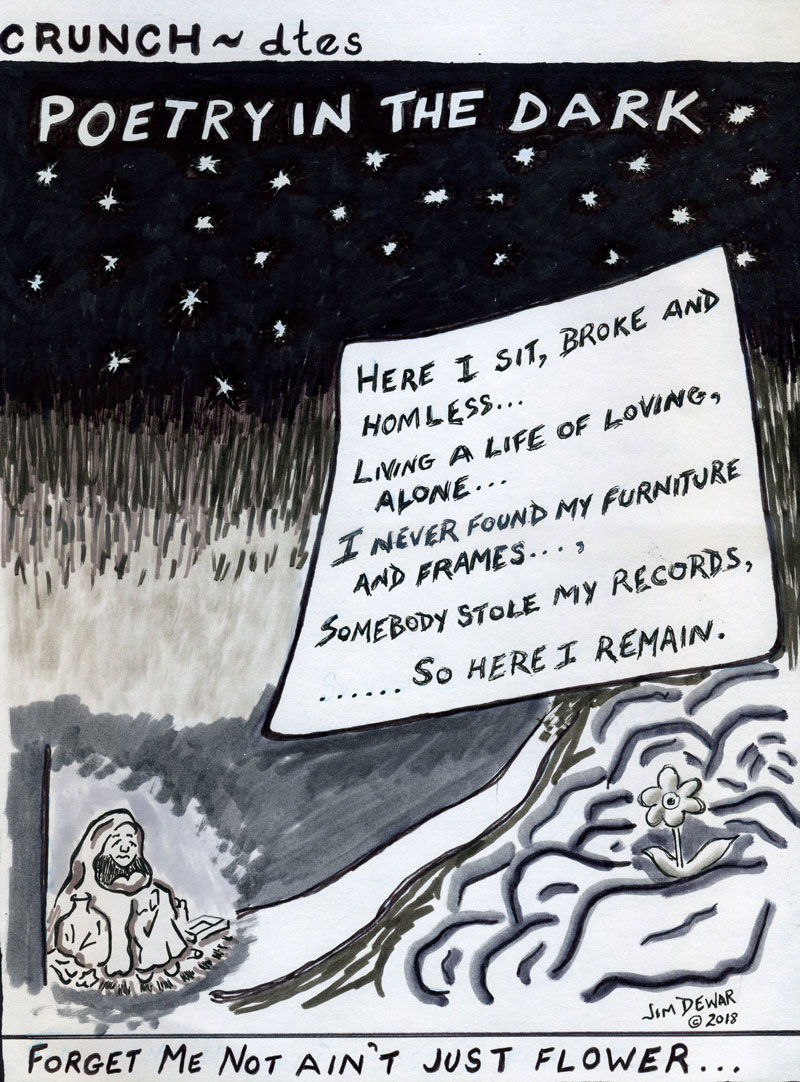 CRUNCH ~ dtes
POETRY IN THE DARK
HERE I SIT, BROKE AND
HOMLESS...
LIVING A LIFE OF LOVING,
ALONE...
I NEVER FOUND MY FURNITURE
AND FRAMES...,
SOMEBODY STOLE MY RECORDS,
...... SO HERE I REMAIN.
JIM DEWAR
© 2018
FORGET ME NOT AIN'T JUST FLOWER...